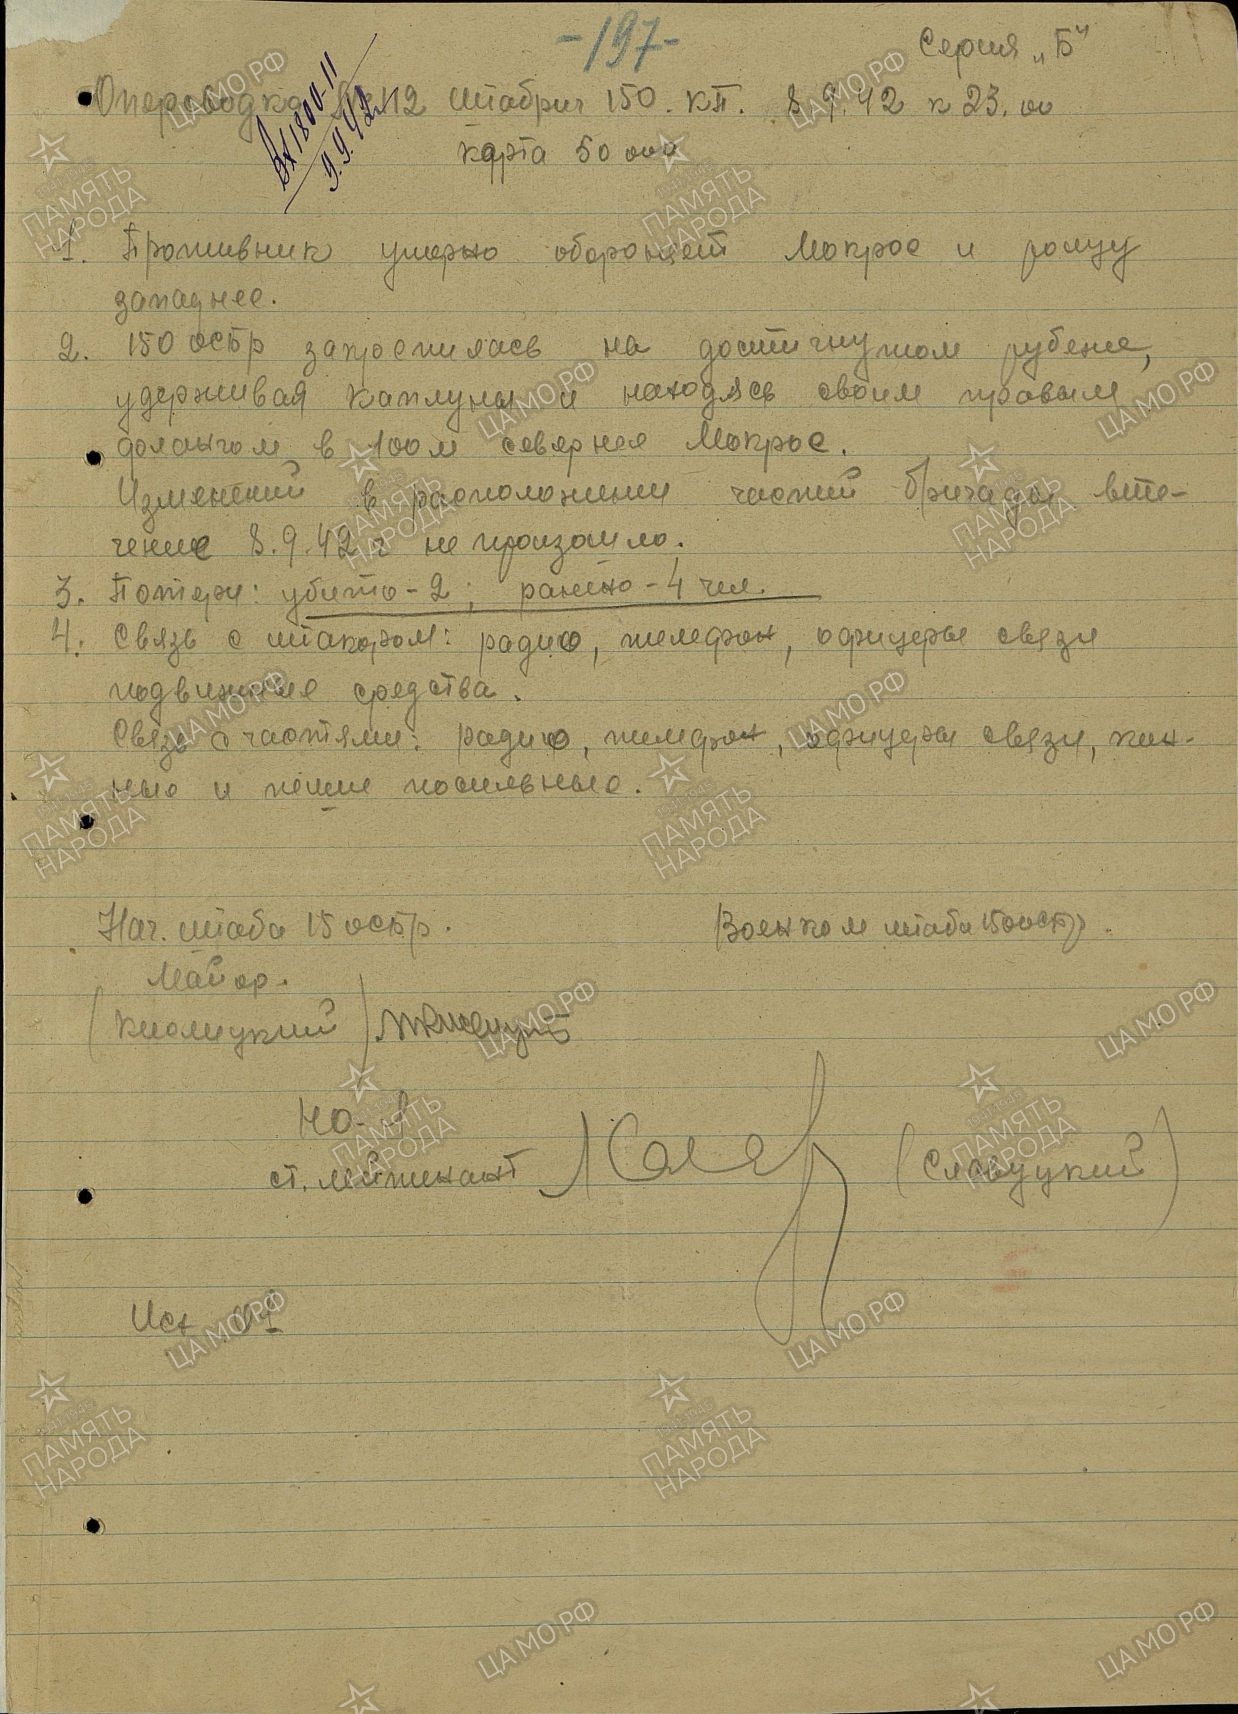 -197-
Серия „Б"
Оперсводка № 12 штабриг 150. КП. 8.9.42 к 23.00
Вх 1800-11
9.9.42
карта 50 000
1. Противник упорно обороняет Мокрое и рощу
западнее.
2. 150 осбр закрепилась на достигнутом рубеже,
удерживая Каплуны и находясь своим правым
флангом в 100 м севернее Мокрое.
Изменений в расположении частей бригады вте-
чение 8.9.42 г не произошло.
3. Потери: убито - 2; ранено - 4 чел.
4. Связь с штакором: радио, телефон, офицеры связи
подвижные средства.
Связь с частями: радио, телефон, офицеры связи, кон-
ные и пешие посыльные.
Нач. штаба 15 осбр.
Военком штаба 150 осбр.
Майор.
НО-1
ст. лейтенант
(Славуцкий)